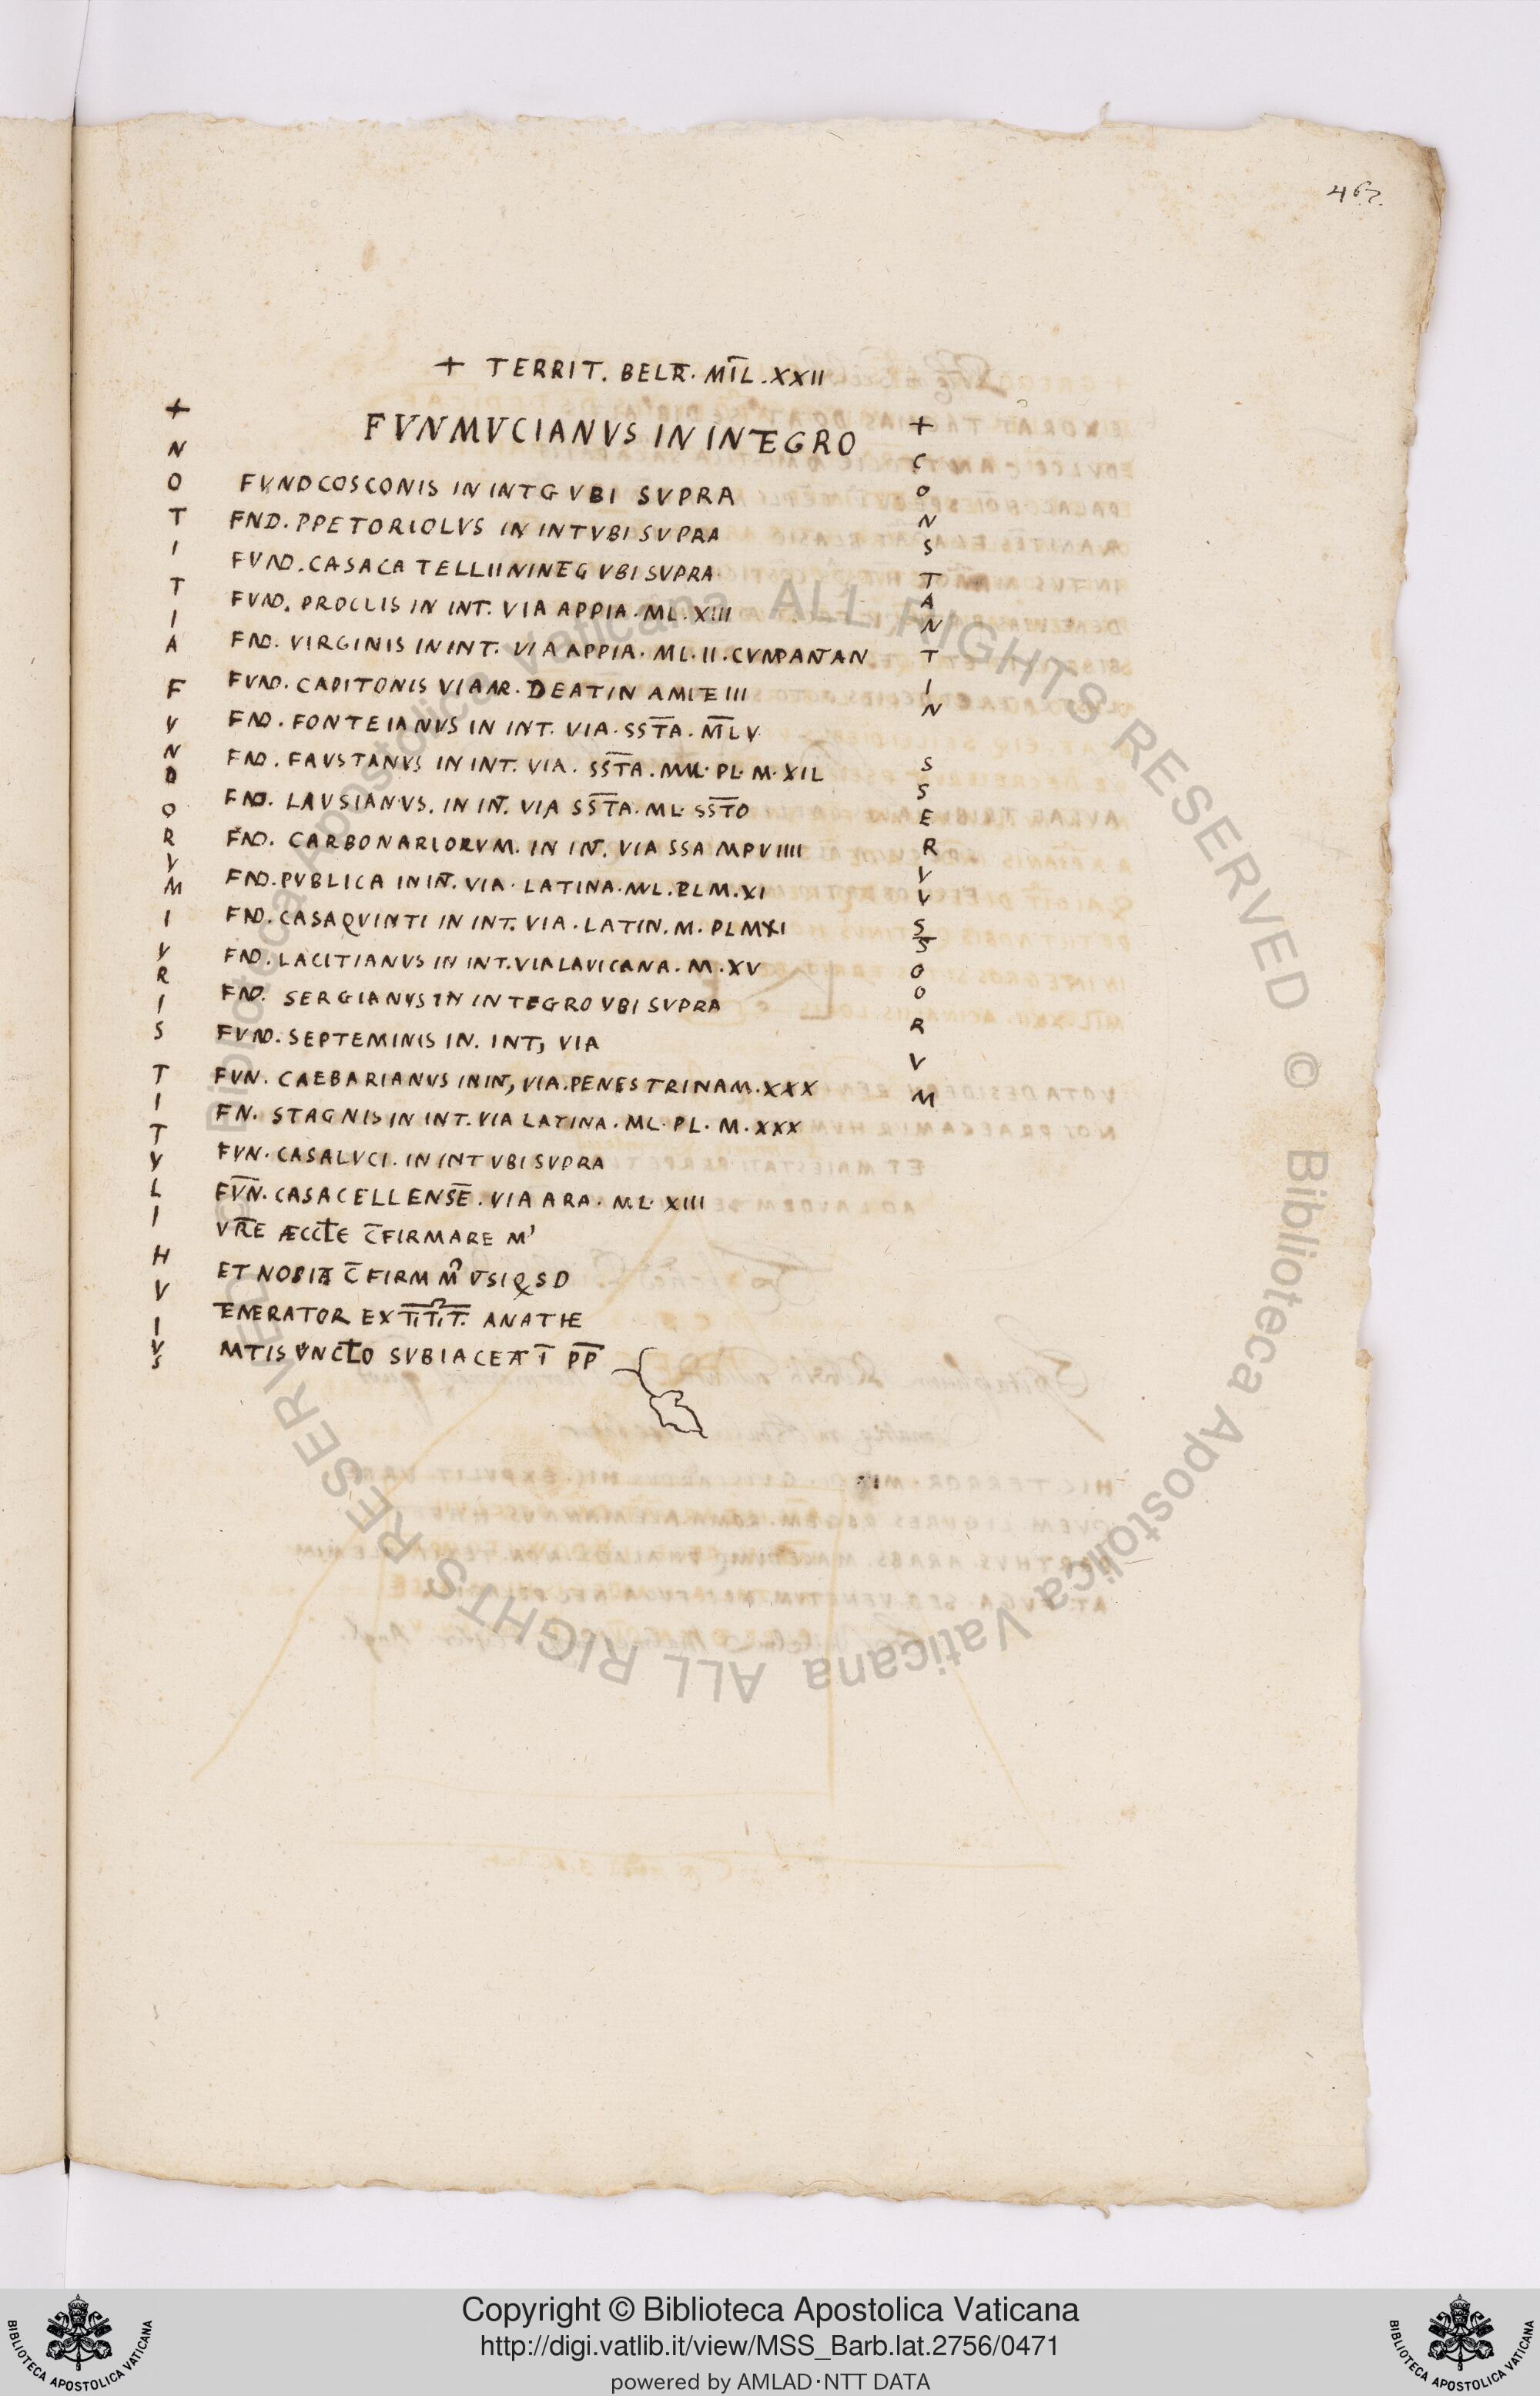 467.
+ TERRIT. BELR̄. MĪL. XXII
FVNMVCIANVS IN INTEGRO
FVND COSCONIS IN INTG VBI SVPRA
FND. PPETORIOLVS IN INT VBI SVPRA
FVND. CASACATELLIININEG VBI SVPRA
FVND. PROCLIS IN INT. VIA APPIA. ML. XIII
FND. VIRGINIS IN INT. VIA APPIA. ML. II.
FVND. CAPITONIS VIA AR. DEATIN A MILE III
FND. FONTEIANVS IN INT. VIA. SSTA. ML V
FND. FAVSTANVS IN INT. VIA. SSTA. ML. PL. M. XIL
FND. LAVSIANVS. IN IN̄. VIA SSTA. ML. SSTO
FND. CARBONARIORVM. IN IN̄. VIA SSA MPVIIII
FND. PVBLICA IN IN̄. VIA. LATINA. ML. PLM. XI
FND. CASAQVINTI IN INT. VIA. LATIN. M. PLMXI
FND. LACITIANVS IN INT. VIA LAVICANA. M. XV
FND. SERGIANVS IN INTEGRO VBI SVPRA
FVND. SEPTEMINIS IN. INT, VIA
FVN. CAEBARIANVS IN IN, VIA. PENESTRINAM. XXX
FN. STAGNIS IN INT. VIA LATINA. ML. PL. M. XXX
FVN. CASALVCI. IN INT VBI SVPRA
FV̄N. CASACELLENSĒ. VIA ARA. ML. XIII
VR̄E ÆCCLE C̄FIRMARE M'
ET NOBIT̄ C̄ FIRM M̄ VSIQ SD
TENERATOR EX T̄ĪT̄ĪT̄. ANATHE
MTIS VNCLO SVBIACEAT Ī P̄P̄
+ NOTITIA FVNDORVM IVRIS TITVLI HVIVS
+ CONSTANTIN SSERVVS SSOORVM
Copyright © Biblioteca Apostolica Vaticana
http://digi.vatlib.it/view/MSS_Barb.lat.2756/0471
powered by AMLAD·NTT DATA
BIBLIOTECA APOSTOLICA VATICANA
BIBLIOTECA APOSTOLICA VATICANA
© Biblioteca Apostolica Vaticana ALL RIGHTS RESERVED
© Biblioteca Apostolica Vaticana ALL RIGHTS RESERVED